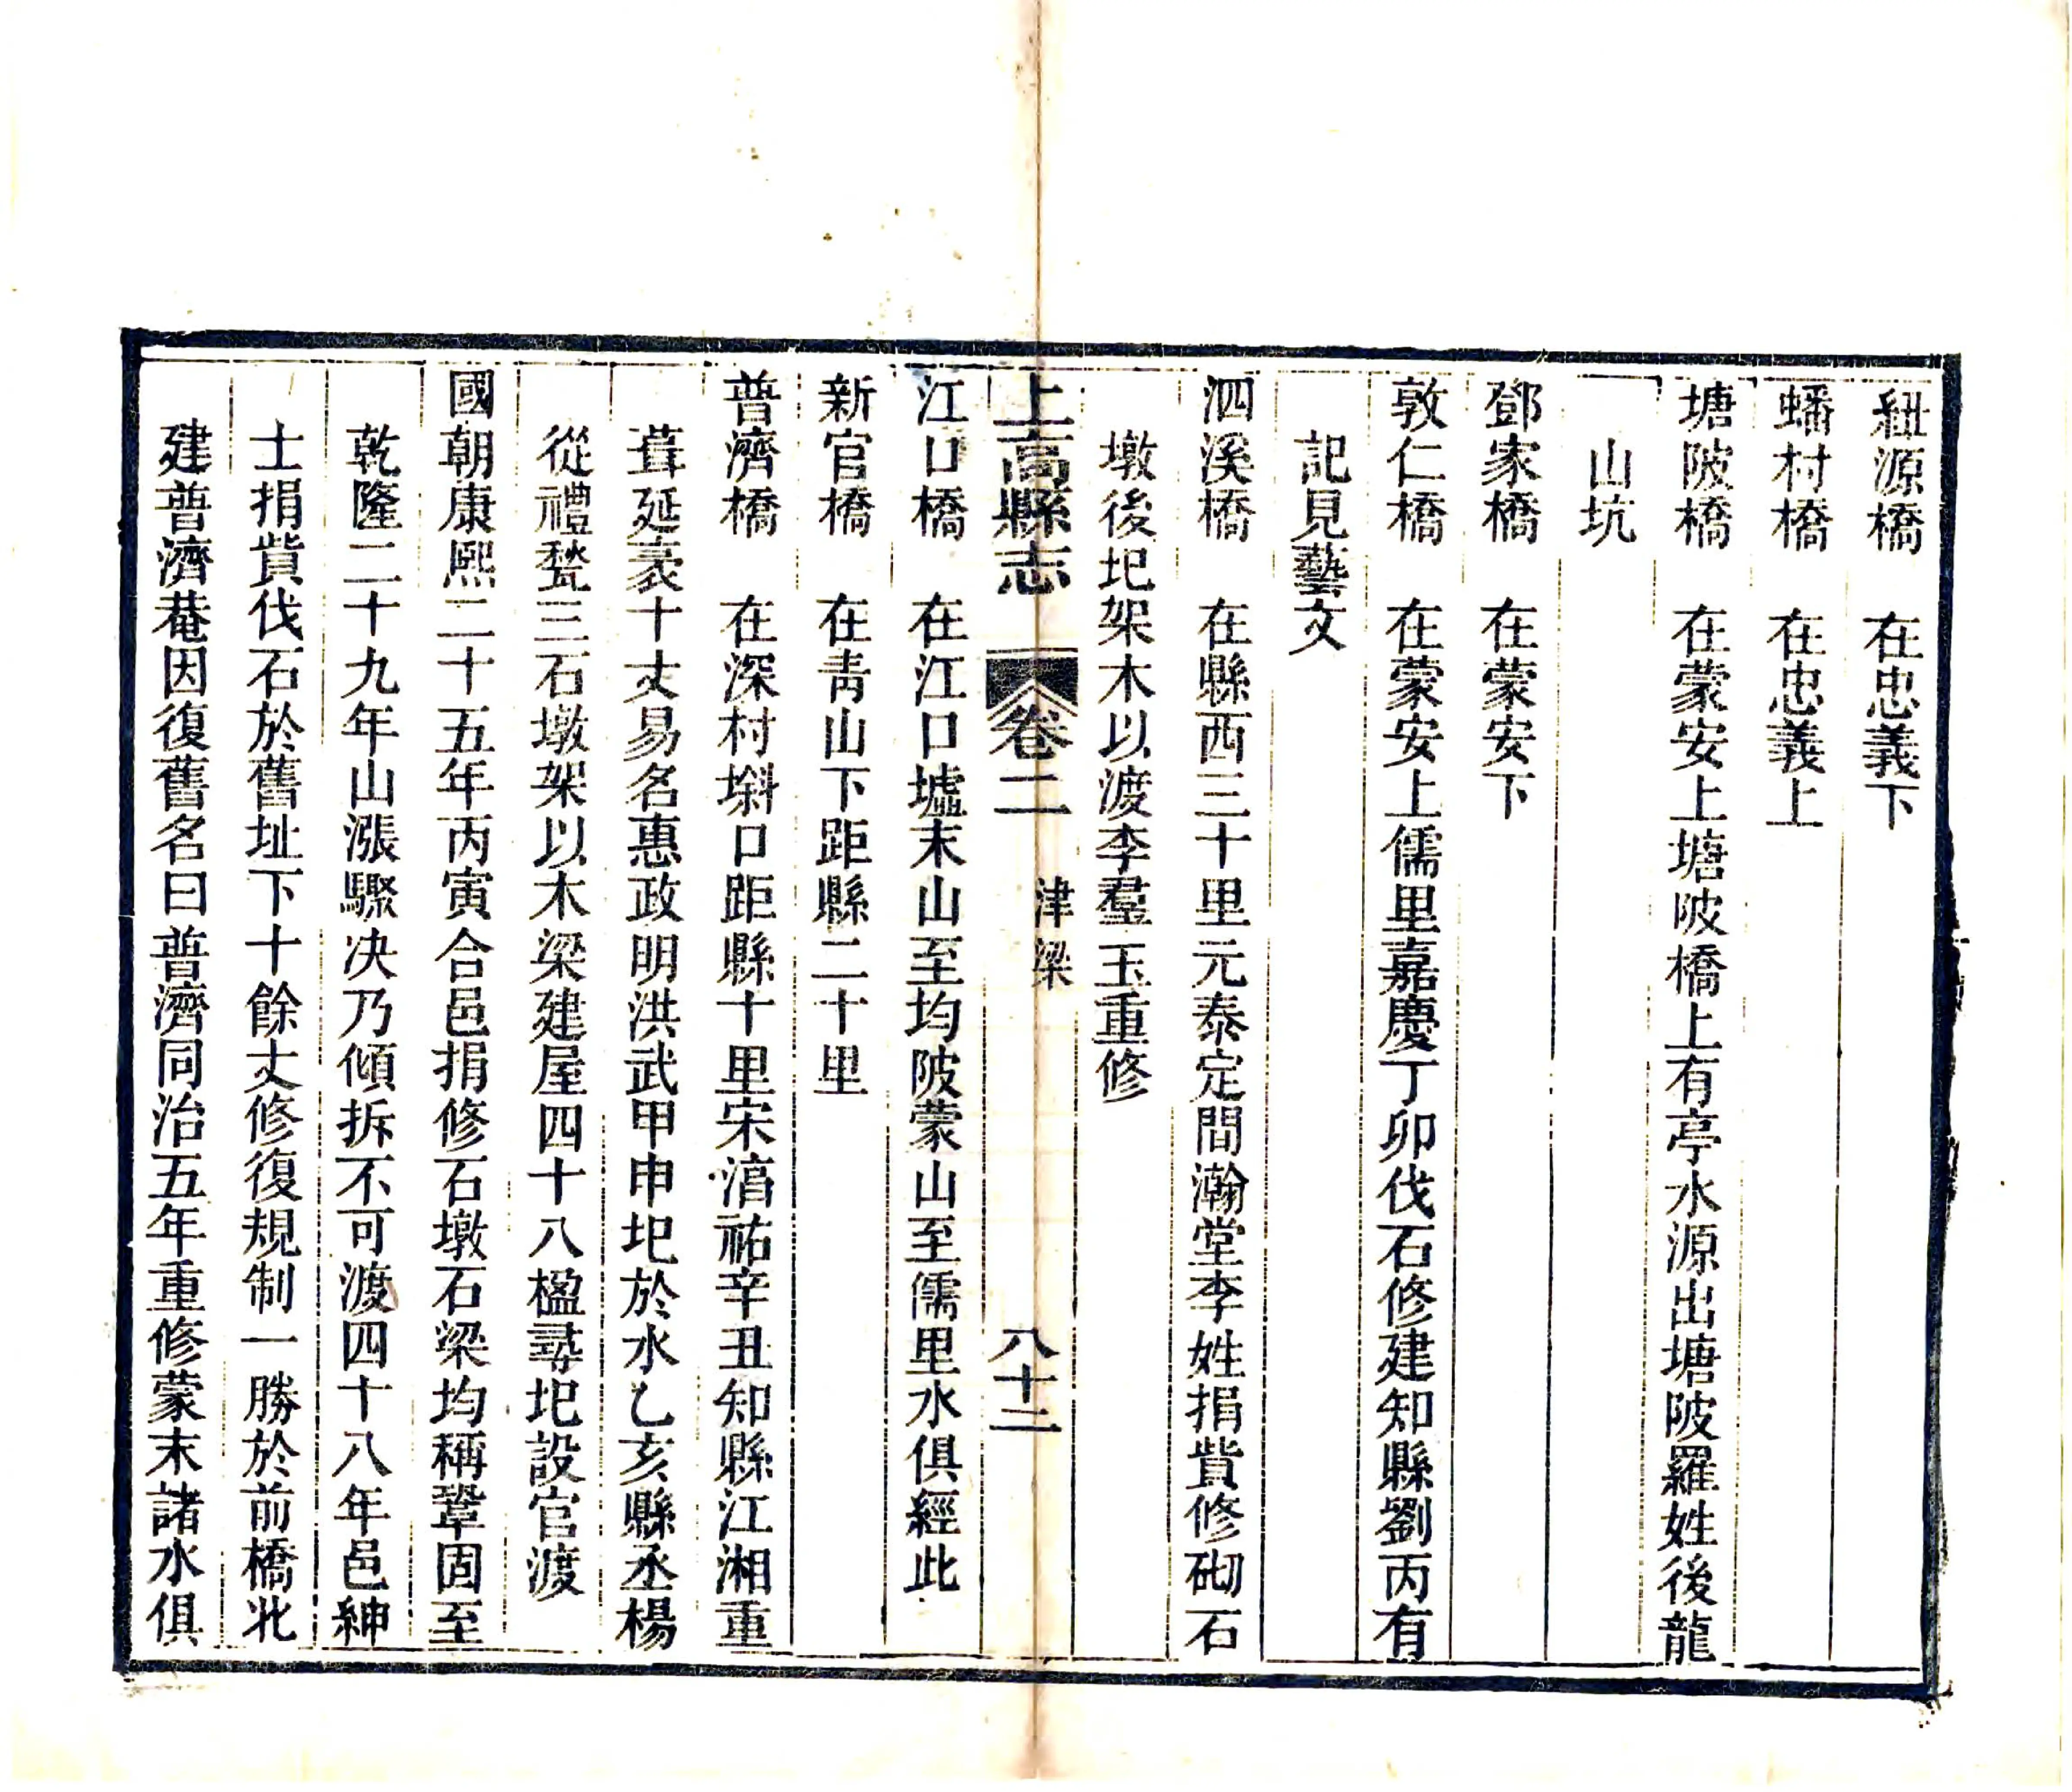 紐源橋　在忠義下
蟠村橋　在忠義上
塘陂橋　在蒙安上塘陂橋上有亭水源出塘陂羅姓後龍
山坑
鄧家橋　在蒙安下
敦仁橋　在蒙安上儒里嘉慶丁卯伐石修建知縣劉丙有
記見藝文
泗溪橋　在縣西三十里元泰定間瀚堂李姓捐貲修砌石
墩後圯架木以渡李羣玉重修
上高縣志　卷二　津梁　八十二
江口橋　在江口墟末山至均陂蒙山至儒里水俱經此
新官橋　在靑山下距縣二十里
普濟橋　在深村㙦口距縣十里宋淯祐辛丑知縣江湘重
葺延袤十丈易名惠政明洪武甲申圯於水乙亥縣丞楊
從禮甃三石墩架以木梁建屋四十八楹尋圯設官渡
國朝康熙二十五年丙寅合邑捐修石墩石梁均稱鞏固至
乾隆二十九年山漲驟决乃傾拆不可渡四十八年邑紳
士捐貲伐石於舊址下十餘丈修復規制一勝於前橋北
建普濟菴因復舊名曰普濟同治五年重修蒙末諸水俱